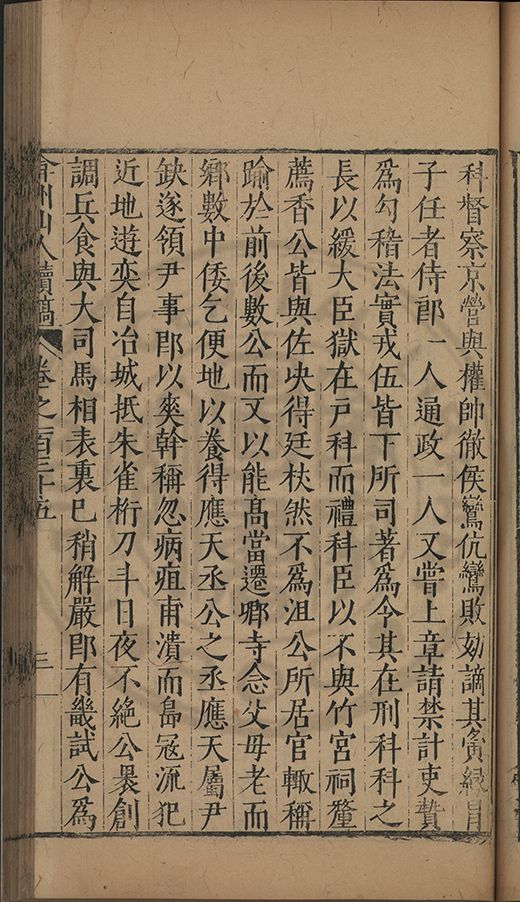 科督察京營與權帥徹侯鸞伉鸞敗劾謫其夤緣冒
子任者侍郎一人通政一人又嘗上章請禁計吏贄
爲勾稽法實戎伍皆下所司著爲令其在刑科科之
長以緩大臣獄在戸科而禮科臣以不與竹宮祠釐
薦香公皆與佐央得廷杖然不爲沮公所居官輙稱
踰於前後數公而又以能高當遷卿寺念父母老而
鄉數中倭乞便地以養得應天丞公之丞應天屬尹
缺遂領尹事卽以爽幹稱忽病疽甫潰而島冦流犯
近地遊奕自冶城抵朱雀桁刀斗日夜不絶公褁創
調兵食與大司馬相表裏巳稍解嚴卽有畿試公爲
弇州山人續稿 卷之一百三十五 三